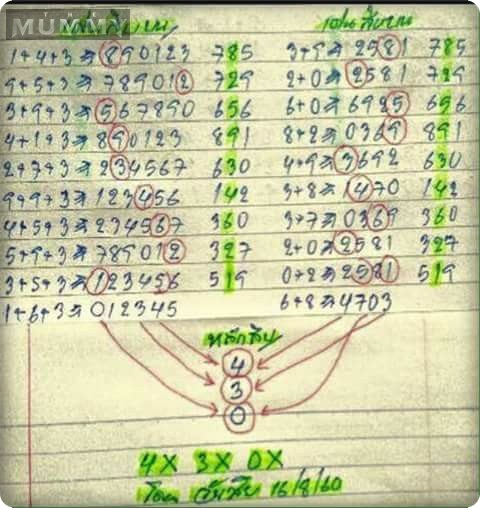 MUMM
เด่นสิบบน เด่นสิบบน
1+4+3⇒890123 785 3+9⇒2581 785
9+5+3⇒789012 729 2+0⇒2581 729
3+9+3⇒567890 656 6+0⇒6925 656
4+1+3⇒890123 891 8+2⇒0369 891
2+7+3⇒234567 630 4+9⇒3692 630
9+9+3⇒123456 142 3+8⇒1470 142
4+5+3⇒234567 360 3+7⇒0369 360
5+9+3⇒789012 327 2+0⇒2581 327
3+5+3⇒123456 519 0+2⇒2581 519
1+6+3⇒012345 6+8⇒4703
หลักสิบ
4
3
0
4X 3X 0X
โดย 16/8/60